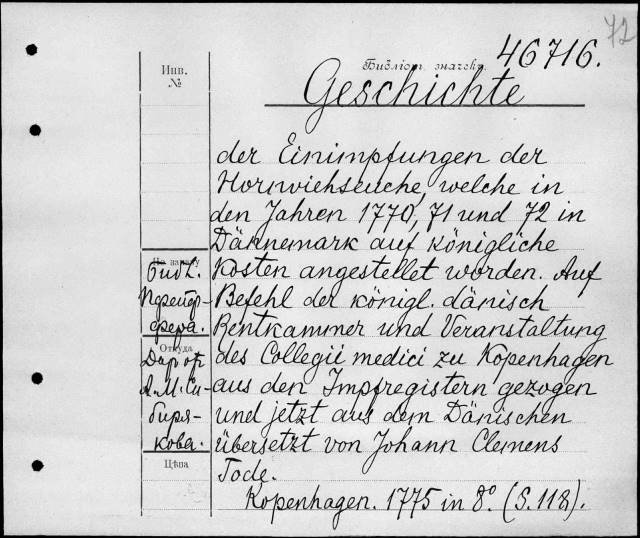 72
46716.
Инв.
№
Библіот. значекъ.
Geschichte
der Einimpfungen der
Hornviehseuche, welche in
den Jahren 1770, 71 und 72 in
Dännemark auf königliche
Kosten angestellet worden. Auf
Befehl der königl. dänisch
Rentkammer und Veranstaltung
des Collegii medici zu Kopenhagen
aus den Impfregistern gezogen
und jetzt aus dem Dänischen
übersetzt von Johann Clemens
Tode.
Kopenhagen. 1775 in 8° (S. 118).
Библ.
Пфейф-
фера.
Откуда
Дар от
А. М. Си-
биря-
кова.
Цѣна